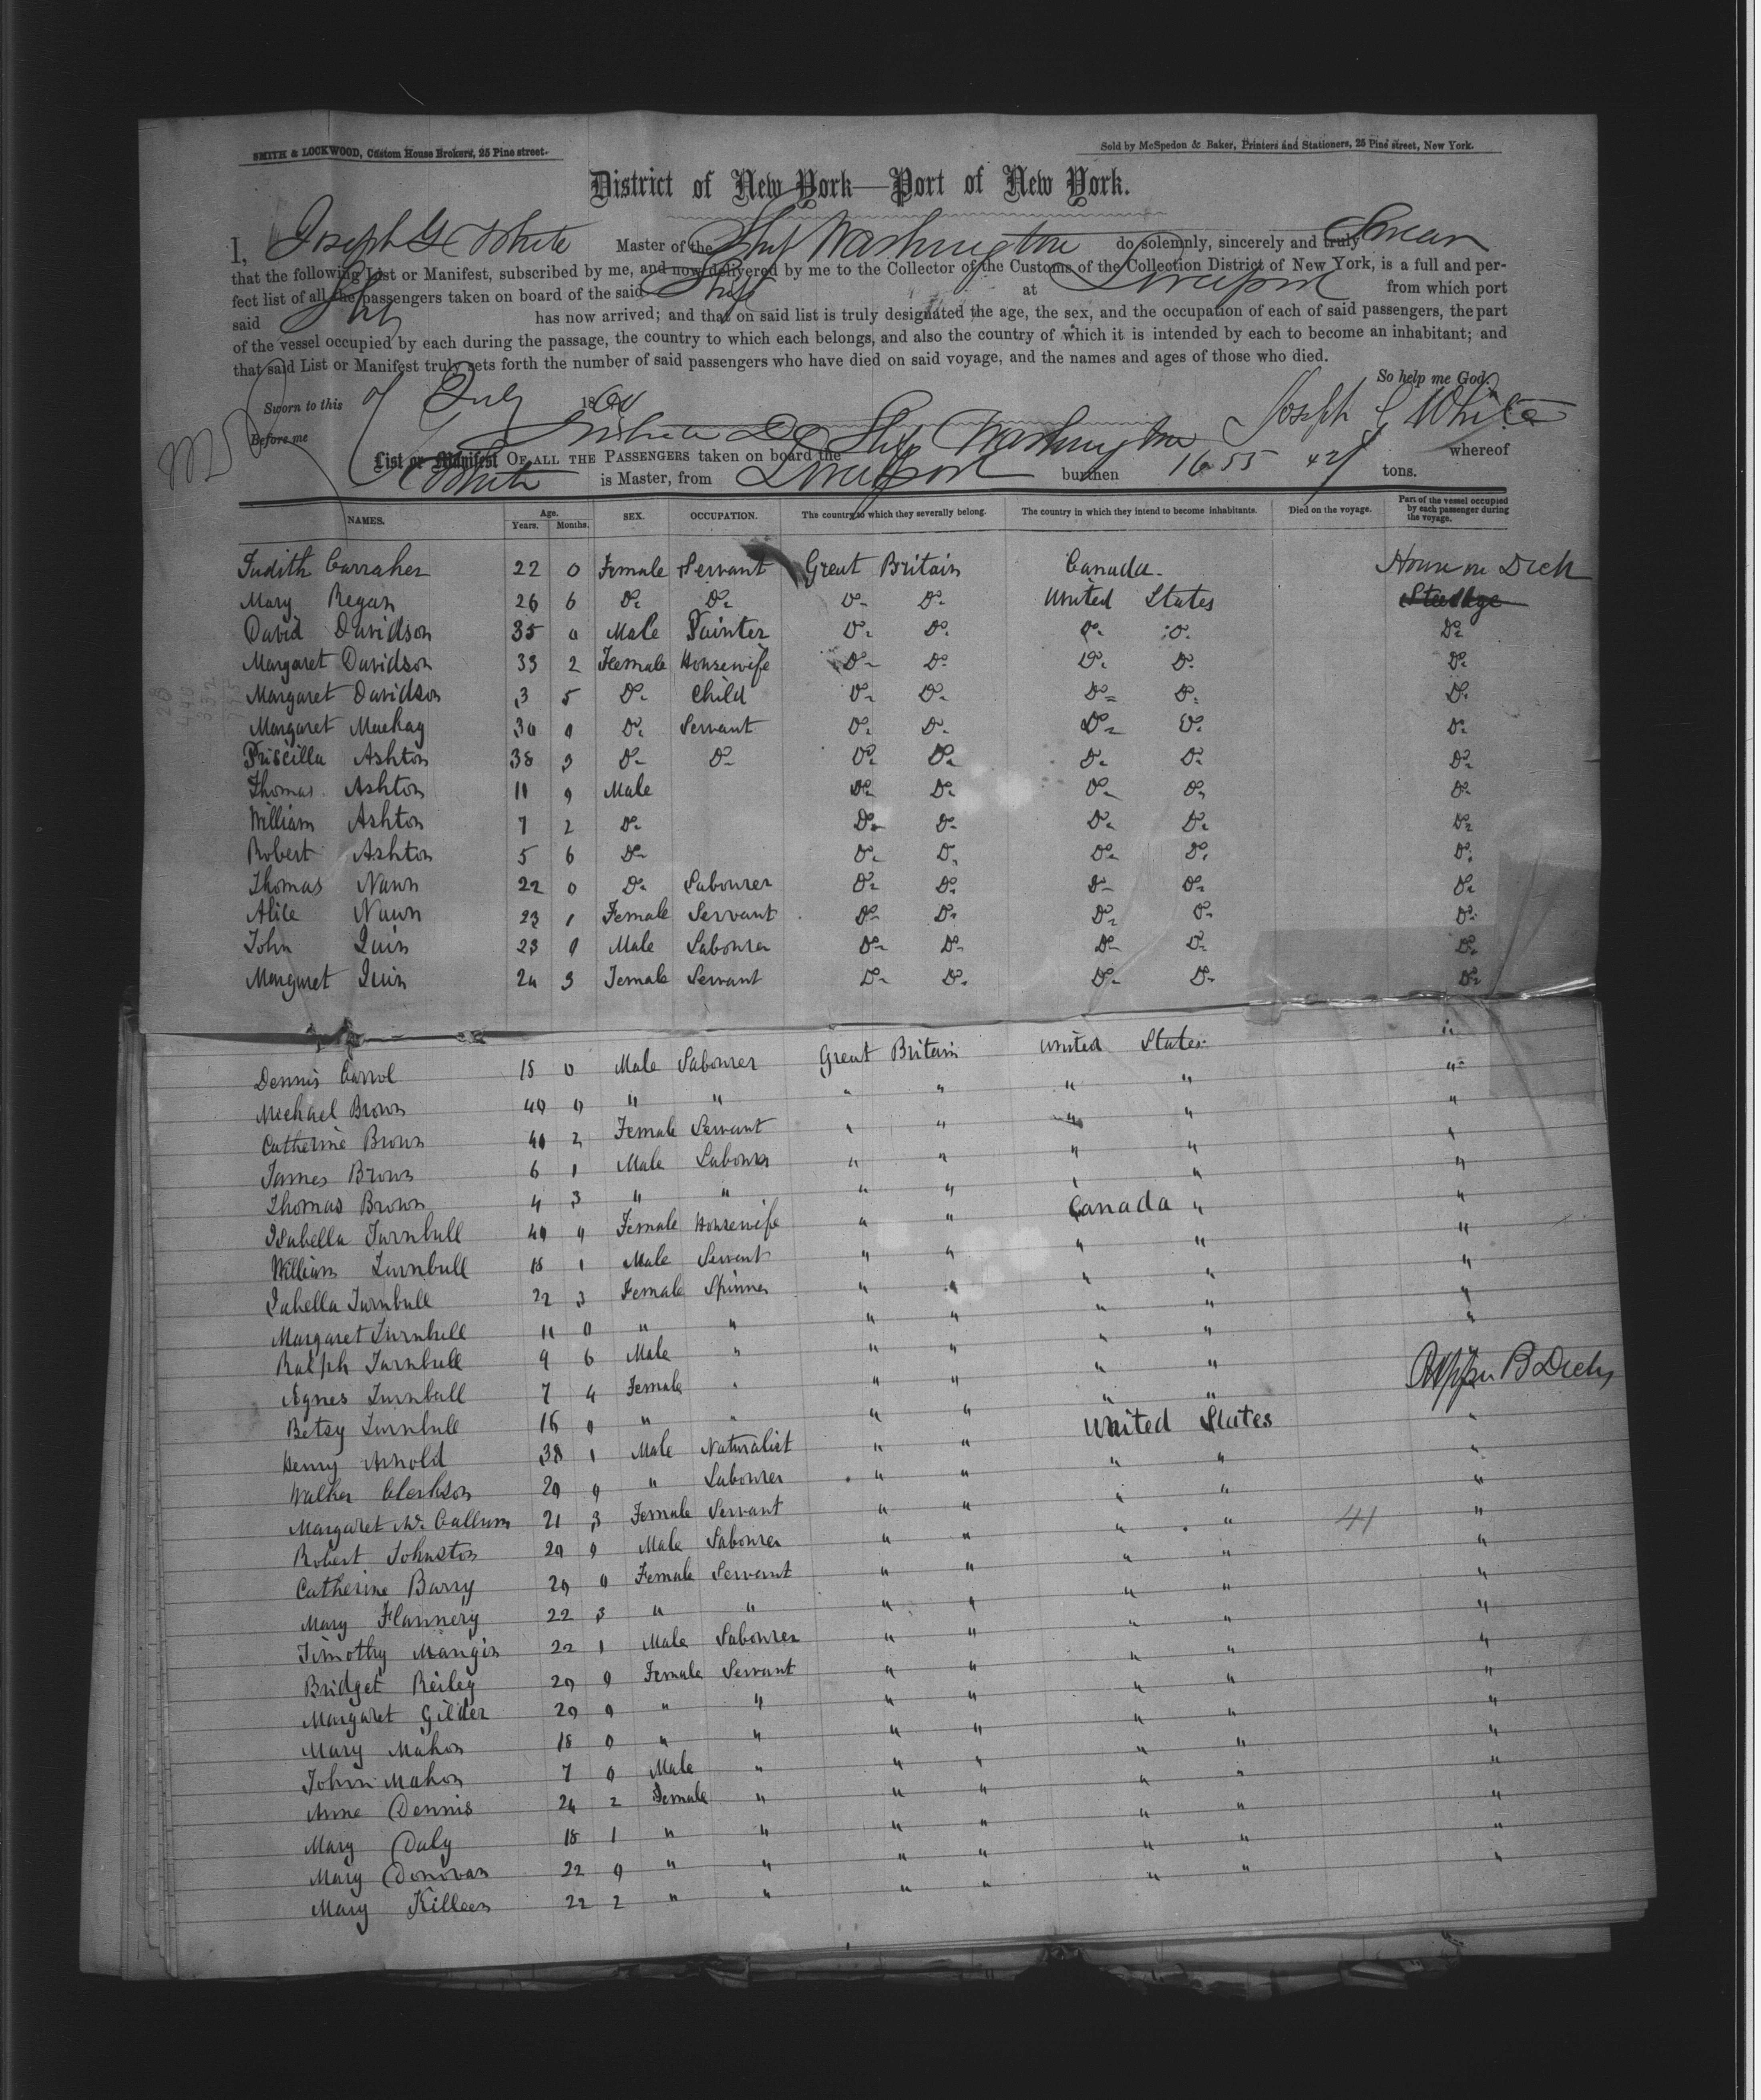 SMITH & LOCKWOOD, Custom House Brokers, 25 Pine street.
Sold by McSpedon & Baker, Printers and Stationers, 25 Pine street, New York.
District of New York—Port of New York.
I, Joseph G White Master of the Ship Washington do solemnly, sincerely and truly Swear
that the following List or Manifest, subscribed by me, and now delivered by me to the Collector of the Customs of the Collection District of New York, is a full and per-
fect list of all the passengers taken on board of the said Ship at Liverpool from which port
said Ship has now arrived; and that on said list is truly designated the age, the sex, and the occupation of each of said passengers, the part
of the vessel occupied by each during the passage, the country to which each belongs, and also the country of which it is intended by each to become an inhabitant; and
that said List or Manifest truly sets forth the number of said passengers who have died on said voyage, and the names and ages of those who died.
So help me God.
Sworn to this 7 July 1860
Joseph G White
Before me
List or Manifest OF ALL THE PASSENGERS taken on board the Ship Washington whereof
White is Master, from Liverpool burthen 1655 tons.
NAMES. Age. Years. Months. SEX. OCCUPATION. The country to which they severally belong. The country in which they intend to become inhabitants. Died on the voyage. Part of the vessel occupied by each passenger during the voyage.
Judith Carraher 22 0 Female Servant Great Britain Canada House on Deck
Mary Regan 26 6 Do Do Do Do United States Steerage
David Davidson 35 0 Male Painter Do Do Do Do Do
Margaret Davidson 33 2 Feemale Housewife Do Do Do Do Do
Margaret Davidson 3 5 Do Child Do Do Do Do Do
Margaret Mackay 30 0 Do Servant Do Do Do Do Do
Priscilla Ashton 38 3 Do Do Do Do Do Do Do
Thomas Ashton 11 9 Male Do Do Do Do Do
William Ashton 7 2 Do Do Do Do Do Do
Robert Ashton 5 6 Do Do Do Do Do Do
Thomas Nawn 22 0 Do Labourer Do Do Do Do Do
Alice Nawn 23 1 Female Servant Do Do Do Do Do
John Quin 23 0 Male Labourer Do Do Do Do Do
Margaret Quin 24 3 Female Servant Do Do Do Do Do
Dennis Carrol 18 0 Male Labourer Great Britain United States "
Michael Brown 40 0 " " " " " " "
Catherine Brown 40 2 Female Servant " " " " "
James Brown 6 1 Male Labourer " " " " "
Thomas Brown 4 3 " " " " " " "
Isabella Turnbull 40 0 Female Housewife " " Canada " "
William Turnbull 18 1 Male Servant " " " " "
Isabella Turnbull 22 3 Female Spinner " " " " "
Margaret Turnbull 11 0 " " " " " " "
Ralph Turnbull 9 6 Male " " " " " "
Agnes Turnbull 7 4 Female " " " " "
Betsy Turnbull 16 0 " " " " " "
Henry Arnold 38 1 Male Naturalist " " United States "
Walker Clarkson 20 0 " Labourer " " " " "
Margaret Mc Callum 21 3 Female Servant " " " " "
Robert Johnston 20 0 Male Labourer " " " " 41 "
Catherine Barry 20 0 Female Servant " " " " "
Mary Flannery 22 3 " " " " " " "
Timothy Mangin 22 1 Male Labourer " " " " "
Bridget Reiley 20 0 Female Servant " " " " "
Margaret Gilder 20 0 " " " " " " "
Mary Mahon 18 0 " " " " " " "
John Mahon 7 0 Male " " " " " "
Anne Dennis 24 2 Female " " " " " "
Mary Daly 18 1 " " " " " " "
Mary Donovan 22 0 " " " " " " "
Mary Killeen 22 2 " " " " " " "